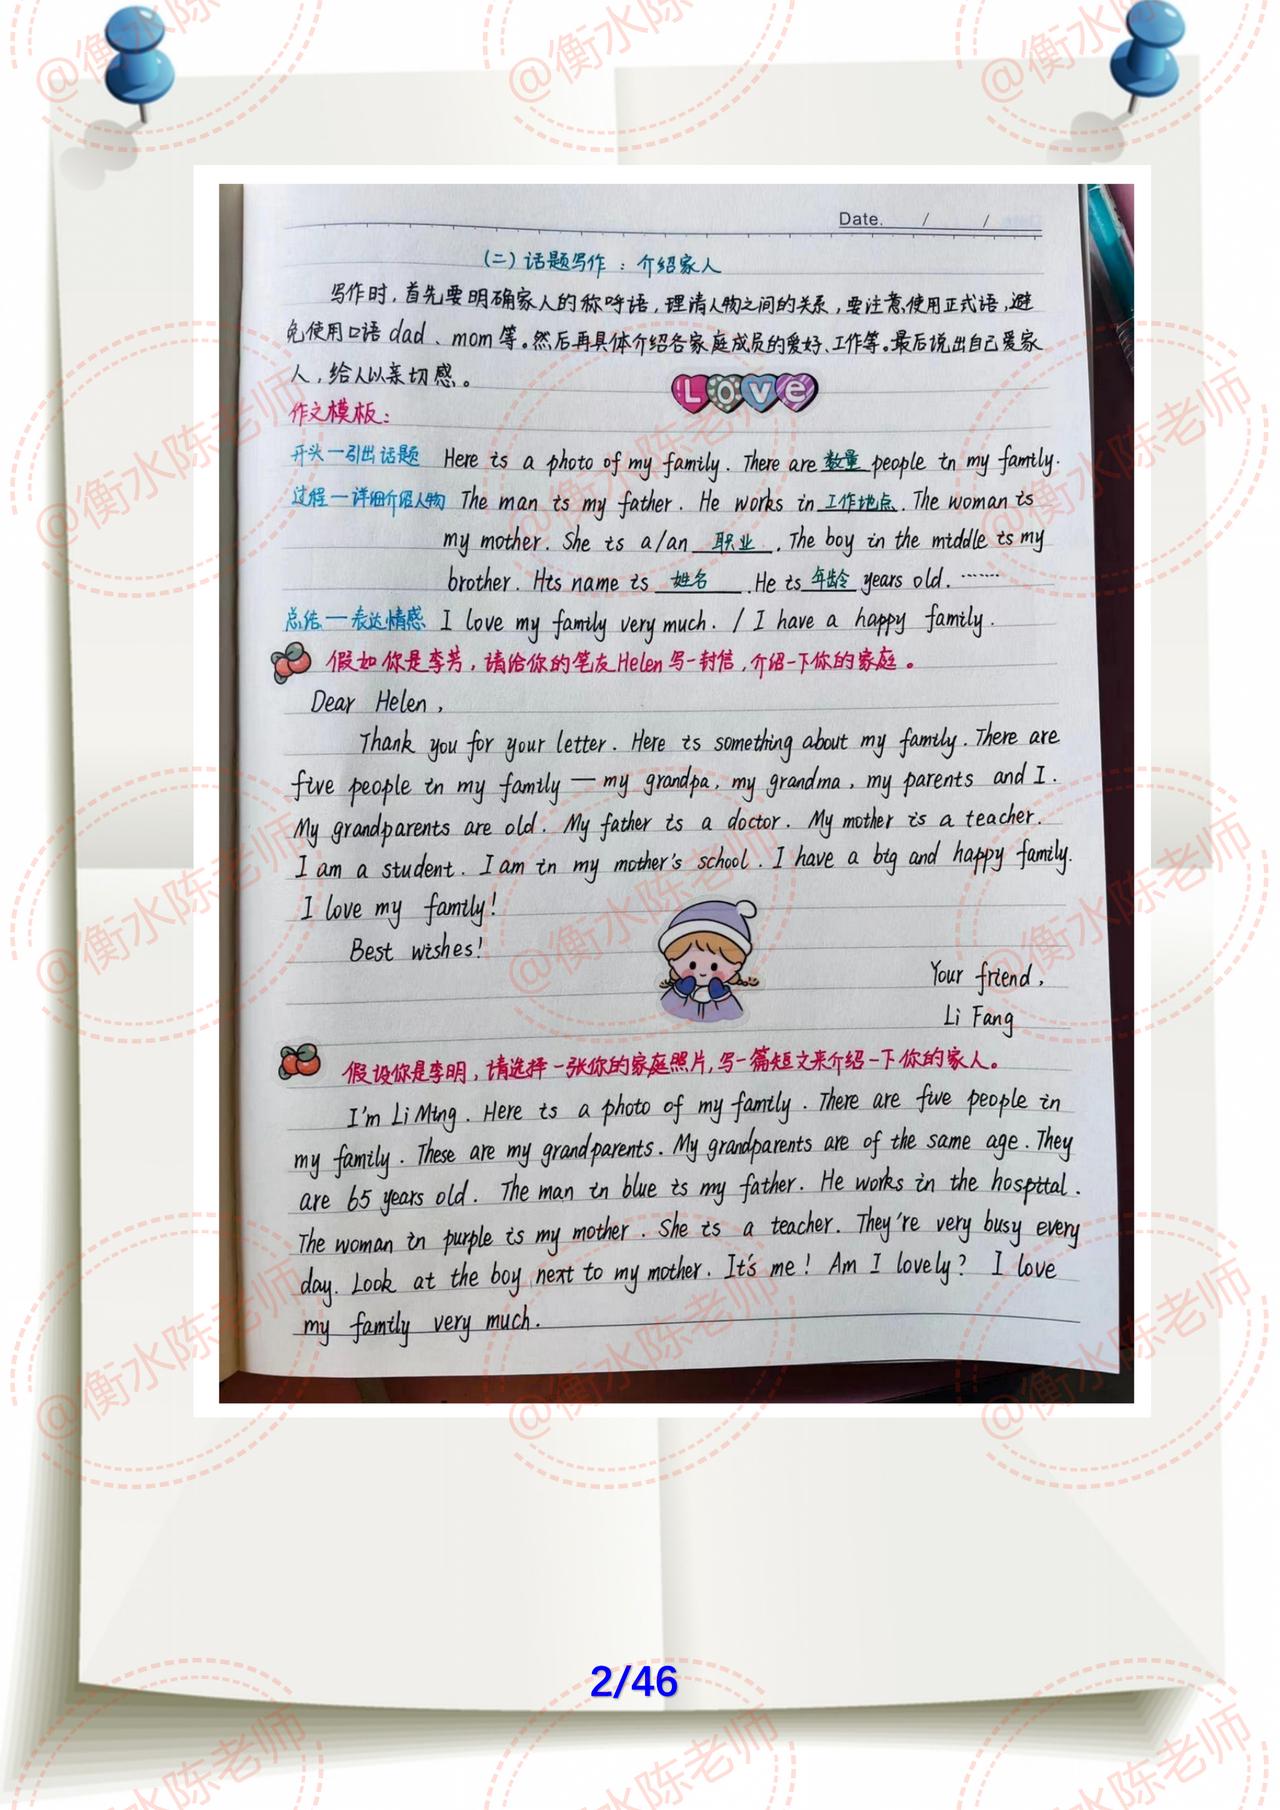 Date. / /
(二) 话题写作：介绍家人
写作时，首先要明确家人的称呼语，理清人物之间的关系，要注意使用正式语，避
免使用口语 dad、mom 等。然后再具体介绍各家庭成员的爱好、工作等。最后说出自己爱家
人，给人以亲切感。
LOVe
作文模板：
开头—引出话题 Here is a photo of my family. There are 数量 people in my family.
过程—详细介绍人物 The man is my father. He works in 工作地点. The woman is
my mother. She is a/an 职业. The boy in the middle is my
brother. His name is 姓名. He is 年龄 years old. ……
总结—表达情感 I love my family very much. / I have a happy family.
假如你是李芳，请给你的笔友Helen写一封信，介绍一下你的家庭。
Dear Helen,
Thank you for your letter. Here is something about my family. There are
five people in my family — my grandpa, my grandma, my parents and I.
My grandparents are old. My father is a doctor. My mother is a teacher.
I am a student. I am in my mother's school. I have a big and happy family.
I love my family!
Best wishes!
Your friend,
Li Fang
假设你是李明，请选择一张你的家庭照片，写一篇短文来介绍一下你的家人。
I'm Li Ming. Here is a photo of my family. There are five people in
my family. These are my grandparents. My grandparents are of the same age. They
are 65 years old. The man in blue is my father. He works in the hospital.
The woman in purple is my mother. She is a teacher. They're very busy every
day. Look at the boy next to my mother. It's me! Am I lovely? I love
my family very much.
2/46
@衡水陈老师